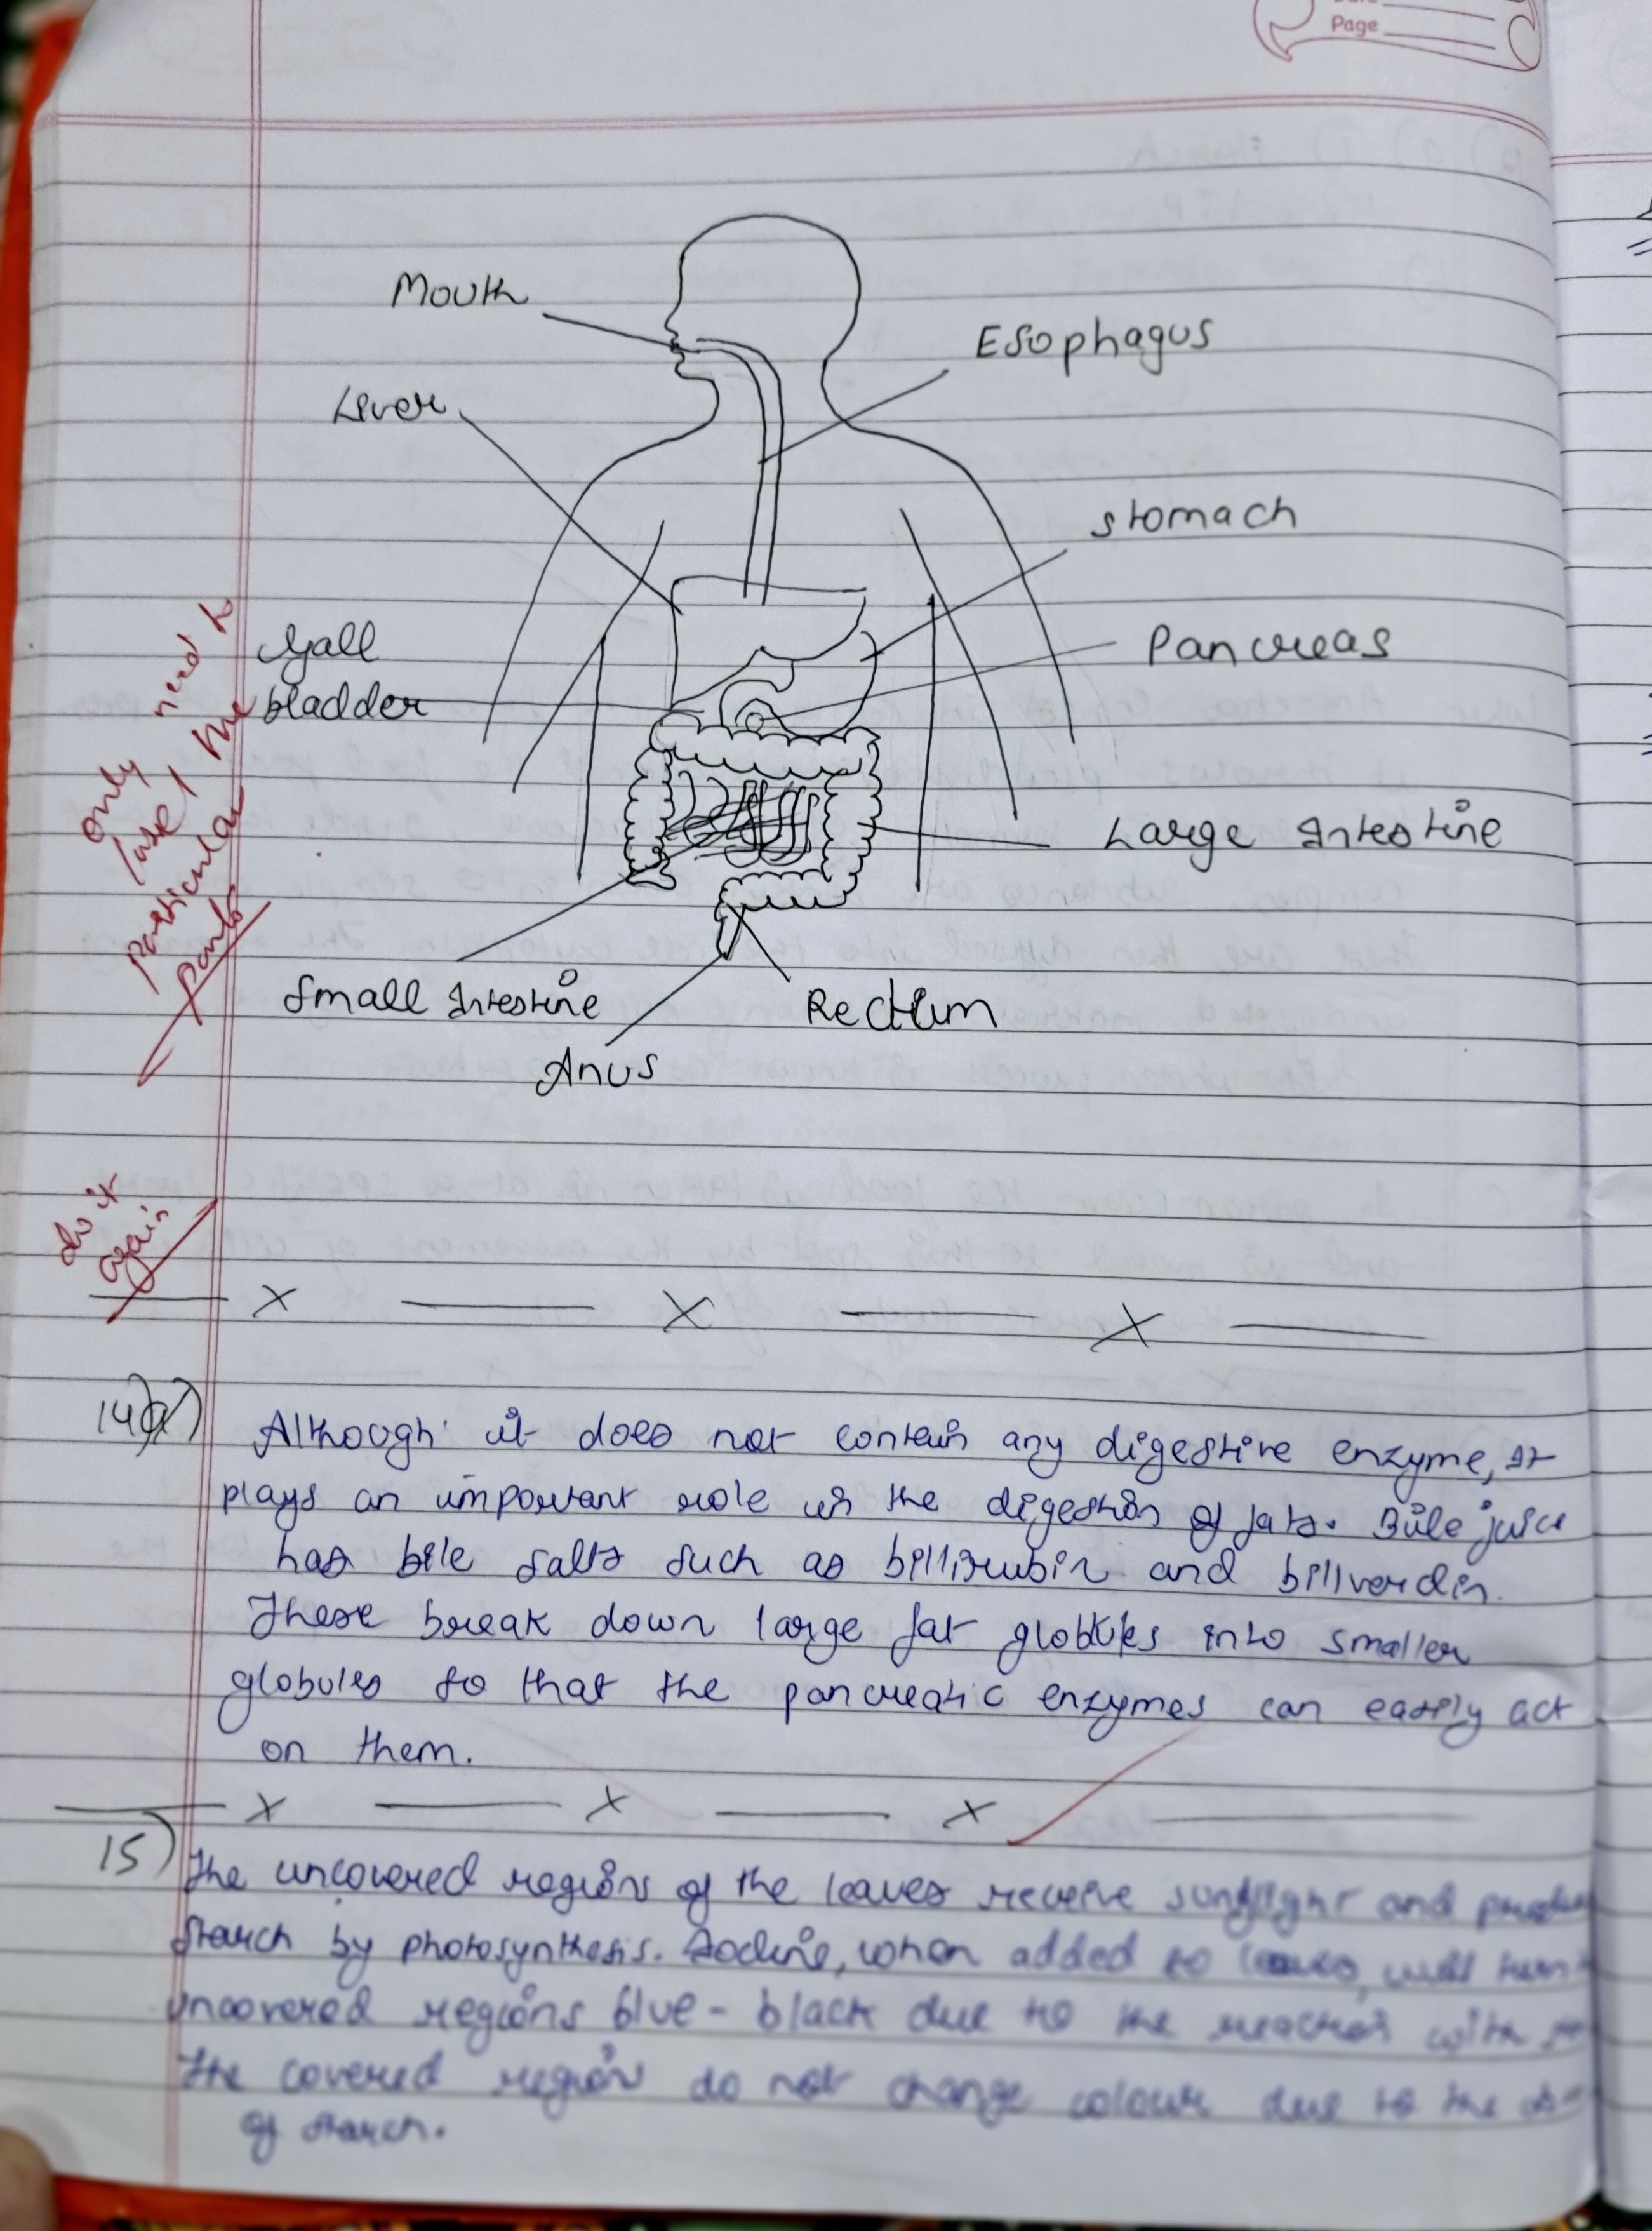 Page
Mouth
Esophagus
Liver
stomach
Gall
bladder
Pancreas
Large Intestine
Small Intestine
Rectum
Anus
only need to
label the
particular
parts
do it
again
X X X
14)a) Although it does not contain any digestive enzyme, It
plays an important role in the digestion of fats. Bile juice
has bile salts such as billirubin and billverdin.
These break down large fat globules into smaller
globules so that the pancreatic enzymes can easily act
on them.
X X X
15) The uncovered regions of the leaves receive sunlight and
starch by photosynthesis. Iodine, when added to leaves, will turn
uncovered regions blue-black due to the reaction with
The covered region do not change colour due to the
of starch.